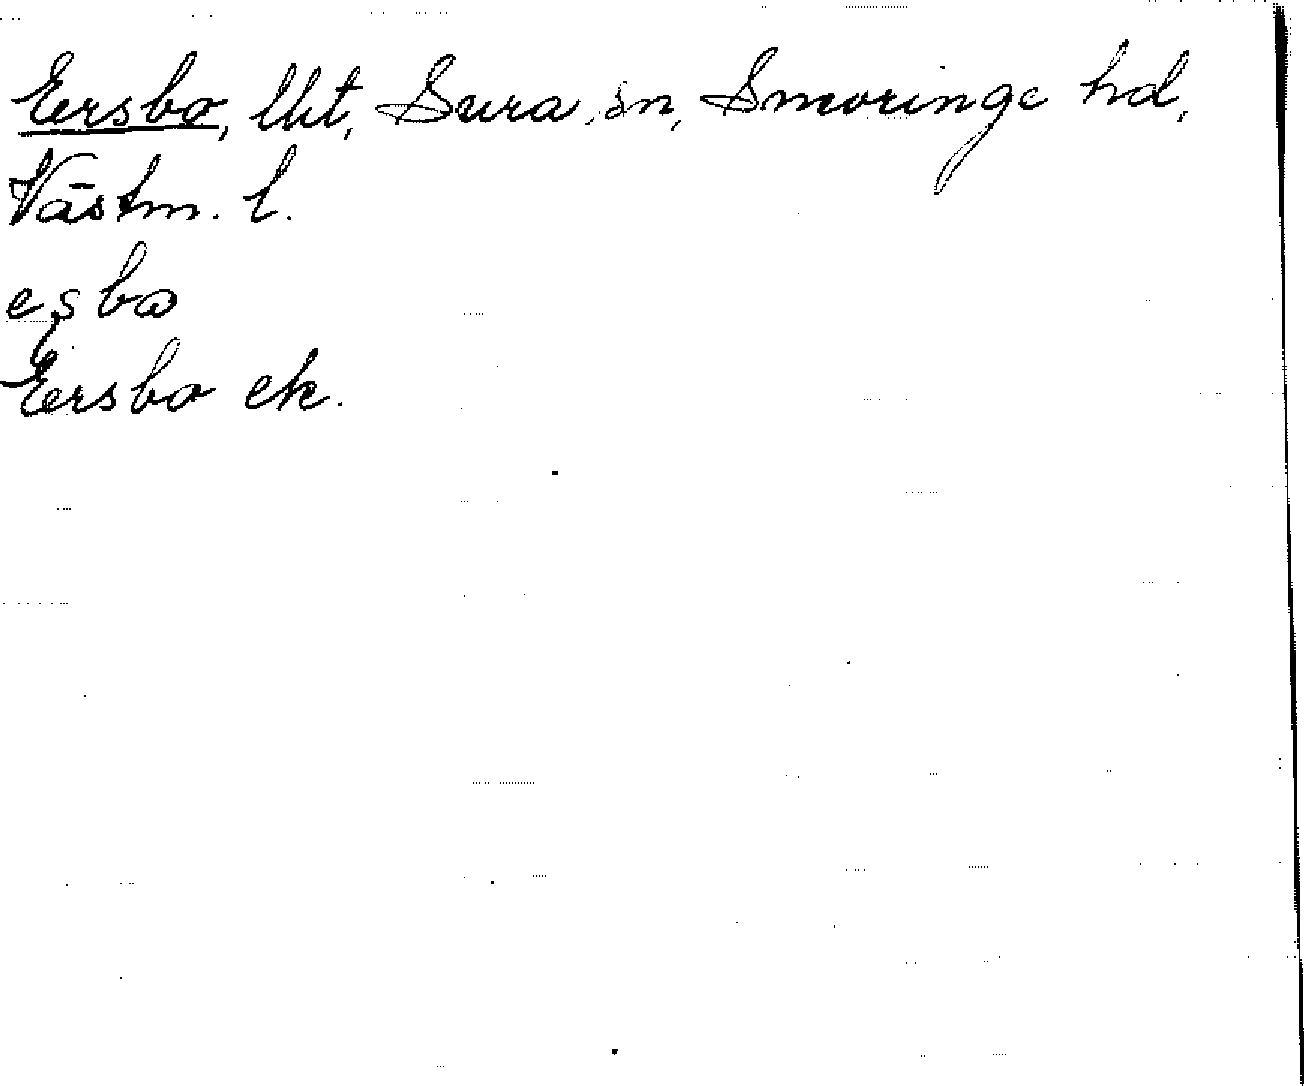 Ersbo, lht, Sura sn, Snevringe hd,
Västm. l.
esbo
Ersbo ek.